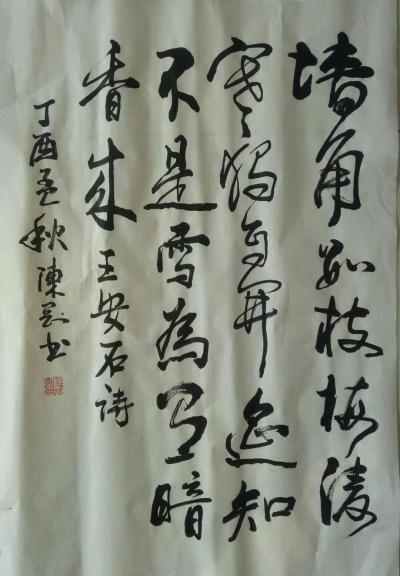 墙角数枝梅凌
寒獨自開遥知
不是雪為有暗
香来王安石詩
丁酉孟秋陳书